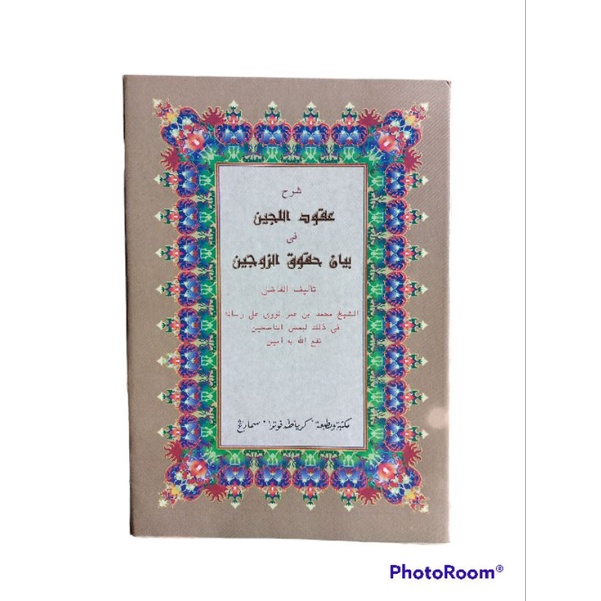 شرح
عقود اللجين
فى
بيان حقوق الزوجين
تأليف الفاضل
الشيخ محمد بن عمر نووى على رسالة
فى ذلك لبعض الناصحين
نفع الله به آمين
مكتبة ومطبعة "كرياطه فوترا" سمارغ
PhotoRoom®